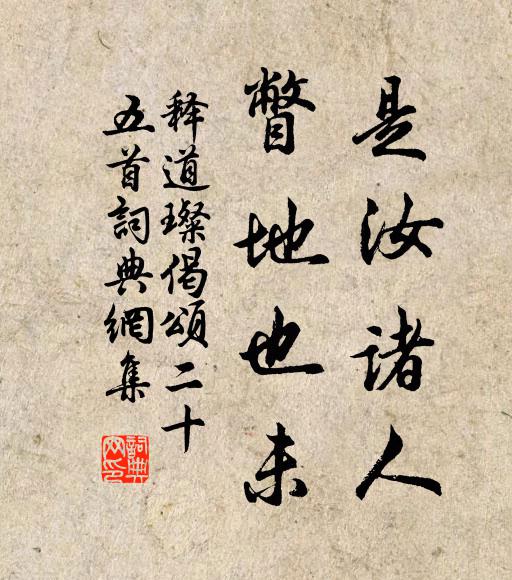 是汝诸人
瞥地也未
释道璨偈颂二十
五首詞典網集
詞典網印